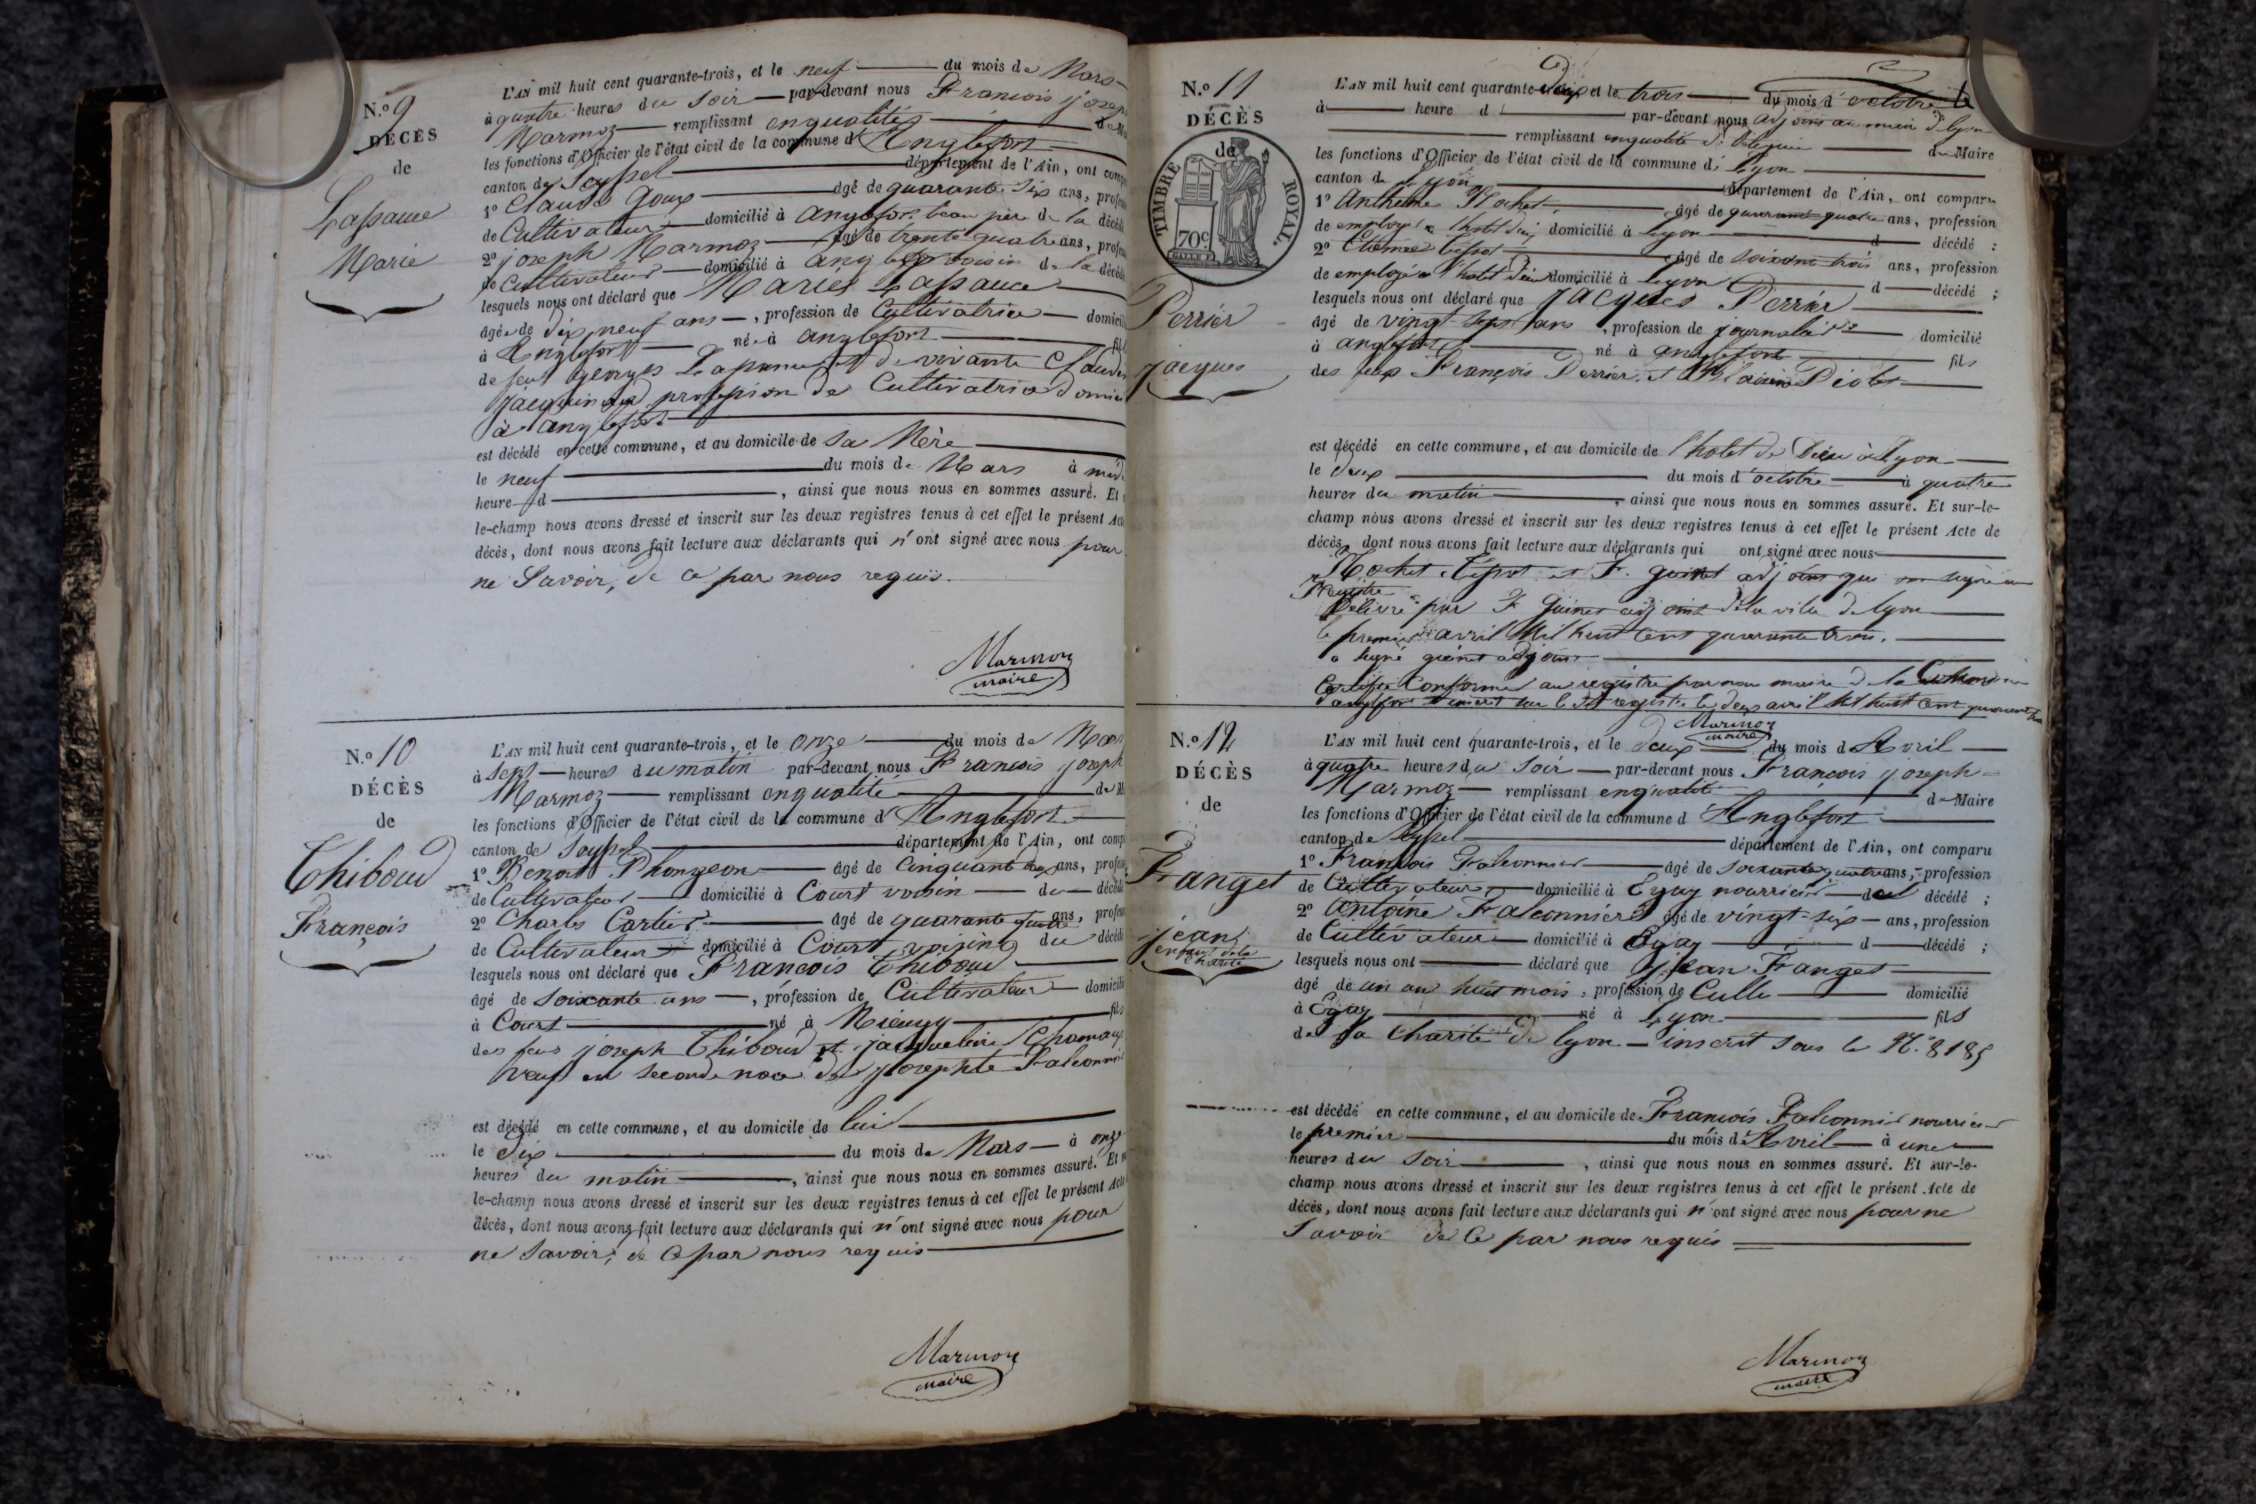 N.º 9
DÉCÈS
de
Lassauce
Marie
L'AN mil huit cent quarante-trois, et le neuf du mois de Mars
à quatre heures du soir par-devant nous François joseph
Marmoz remplissant en qualité de
les fonctions d'Officier de l'état civil de la commune d'Anglefort
canton de Seyssel département de l'Ain, ont
1º Claude Goux âgé de quarante six ans,
de Cultivateur domicilié à anglefort beau père de la
2º joseph Marmoz âgé de trente quatre ans,
de Cultivateur domicilié à anglefort voisin de la
lesquels nous ont déclaré que Marie Lassauce
âgée de dix neuf ans, profession de Cultivatrice
à Anglefort née à anglefort
de feu georges Lassauce et de vivante Claudine
profession de Cultivatrice
à anglefort
est décédé en cette commune, et au domicile de sa Mère
le neuf du mois de Mars à
heure d , ainsi que nous nous en sommes assuré. Et
le-champ nous avons dressé et inscrit sur les deux registres tenus à cet effet le présent
décès, dont nous avons fait lecture aux déclarants qui n'ont signé avec nous pour
ne Savoir, de ce par nous requis.
Marmoz
maire
N.º 10
DÉCÈS
de
Thiboud
François
L'AN mil huit cent quarante-trois, et le onze du mois de
à sept heures du matin par-devant nous François joseph
Marmoz remplissant en qualité de
les fonctions d'Officier de l'état civil de la commune d'Anglefort
canton de Seyssel département de l'Ain, ont
1º Benoit âgé de Cinquante ans,
de Cultivateur domicilié à Court voisin du
2º Charles Carlier âgé de quarante ans,
de Cultivateur domicilié à Court voisin du
lesquels nous ont déclaré que François Thiboud
âgé de soixante ans, profession de Cultivateur
à Court né à fils
des feus joseph Thiboud et jacqueline
veuf en seconde noce de josephte
est décédé en cette commune, et au domicile de lui
le dix du mois de Mars à onze
heures du matin, ainsi que nous nous en sommes assuré. Et
le-champ nous avons dressé et inscrit sur les deux registres tenus à cet effet le présent
décès, dont nous avons fait lecture aux déclarants qui n'ont signé avec nous pour
ne Savoir, de ce par nous requis
Marmoz
maire
N.º 11
DÉCÈS
de
TIMBRE ROYAL.
70c
Perrier
jacques
L'AN mil huit cent quarante-deux et le trois du mois d'octobre
à heure d par-devant nous adjoint au maire de lyon
remplissant en qualité de de Maire
les fonctions d'Officier de l'état civil de la commune de Lyon
canton de Lyon département de l'Ain, ont comparu
1º Anthelme Rochet âgé de quarante quatre ans, profession
de employé à l'hotel dieu domicilié à Lyon d décédé ;
2º Etienne âgé de soixante trois ans, profession
de employé à l'hotel dieu domicilié à Lyon d décédé ;
lesquels nous ont déclaré que jacques Perrier
âgé de vingt sept ans, profession de journalier domicilié
à anglefort né à anglefort fils
des feus François Perrier et
est décédé en cette commune, et au domicile de l'hotel de Dieu à Lyon
le deux du mois d'octobre à quatre
heures du matin, ainsi que nous nous en sommes assuré. Et sur-le-
champ nous avons dressé et inscrit sur les deux registres tenus à cet effet le présent Acte de
décès, dont nous avons fait lecture aux déclarants qui ont signé avec nous
Rochet et F. guinet adjoint qui ont signé au
Registre
Délivré par F guinet adjoint de la ville de lyon
le premier avril Mil huit cent quarante trois.
a signé guinet adjoint
Certifié Conforme au registre par nou maire de la Commune
d'anglefort et inscrit sur le dit registre le deux avril Mil huit cent quarante trois
Marmoz
maire
N.º 12
DÉCÈS
de
Franget
jean
enfant de la
charité
L'AN mil huit cent quarante-trois, et le deux du mois d'Avril
à quatre heures du soir par-devant nous François joseph
Marmoz remplissant en qualité de Maire
les fonctions d'Officier de l'état civil de la commune d'Anglefort
canton de Seyssel département de l'Ain, ont comparu
1º François Falconnier âgé de soixante quatre ans, profession
de Cultivateur domicilié à Eyay nourricier du décédé ;
2º Antoine Falconnier âgé de vingt-six ans, profession
de Cultivateur domicilié à Eyay d décédé ;
lesquels nous ont déclaré que jean Franget
âgé de un an huit mois, profession de Culle domicilié
à Eyay né à Lyon fils
de la Charité de lyon inscrit sous le Nº 8185
est décédé en cette commune, et au domicile de François Falconnier nourricier
le premier du mois d'Avril à une
heures du soir, ainsi que nous nous en sommes assuré. Et sur-le-
champ nous avons dressé et inscrit sur les deux registres tenus à cet effet le présent Acte de
décès, dont nous avons fait lecture aux déclarants qui n'ont signé avec nous pour ne
Savoir de ce par nous requis
Marmoz
maire